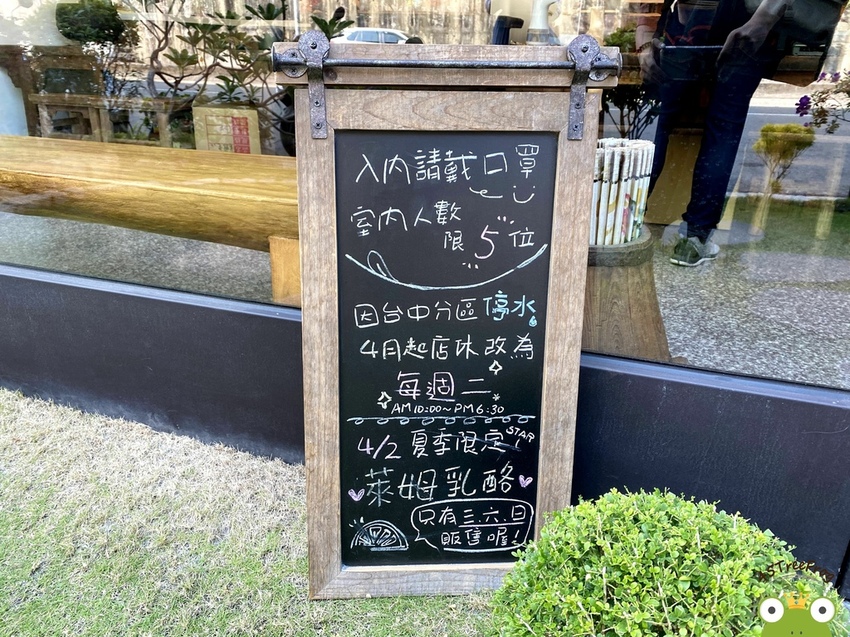 入內請戴口罩
室內人數
限 5 位
因台中分區停水
4月起店休改為
每週二
AM10:00~PM6:30
4/2 夏季限定 START
萊姆乳酪
只有三.六.日
販售喔!